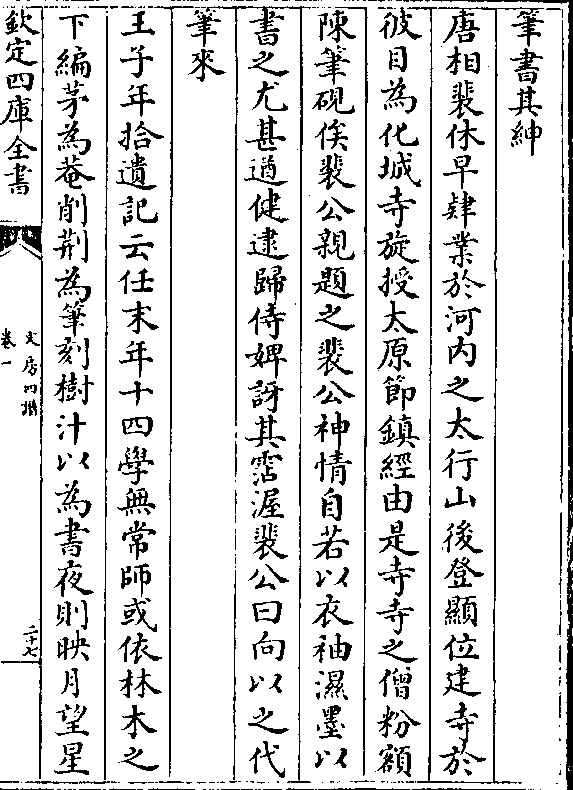 筆書其紳
唐相裴休早肄業於河内之太行山後登顯位建寺於
彼目為化城寺旋授太原節鎮經由是寺寺之僧粉額
陳筆硯俟裴公親題之裴公神情自若以衣袖濕墨以
書之尤甚遒健逮歸侍婢訝其霑渥裴公曰向以之代
筆來
王子年拾遺記云任末年十四學無常師或依林木之
下編茅為菴削荆為筆刻樹汁以為書夜則映月望星
欽定四庫全書
文房四譜
卷一
二十七